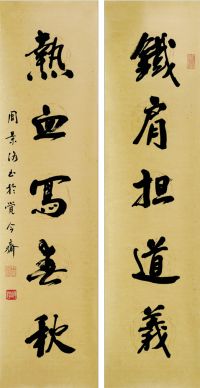 鐵肩担道義
熱血寫春秋
周景洛书於觉今齋